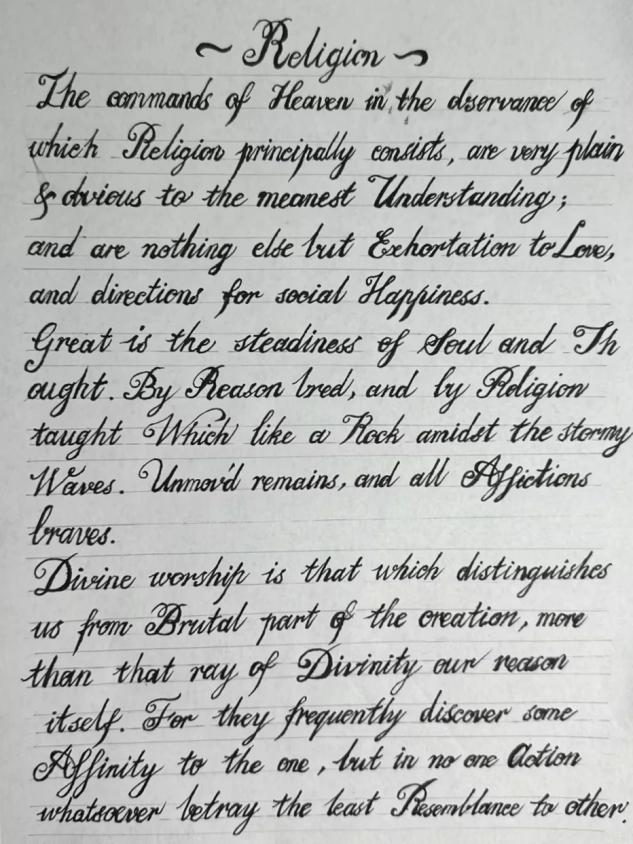 ~ Religion ~
The commands of Heaven in the dservance of
which Religion principally consists, are very plain
& dvious to the meanest Understanding;
and are nothing else but Exhortation to Love,
and directions for social Happiness.
Great is the steadiness of Soul and Th
ought. By Reason bred, and by Religion
taught Which like a Rock amidst the stormy
Waves. Unmov'd remains, and all Affictions
braves.
Divine worship is that which distinguishes
us from Brutal part of the creation, more
than that ray of Divinity our reason
itself. For they frequently discover some
Affinity to the one, but in no one Action
whatsoever betray the least Resemblance to other.